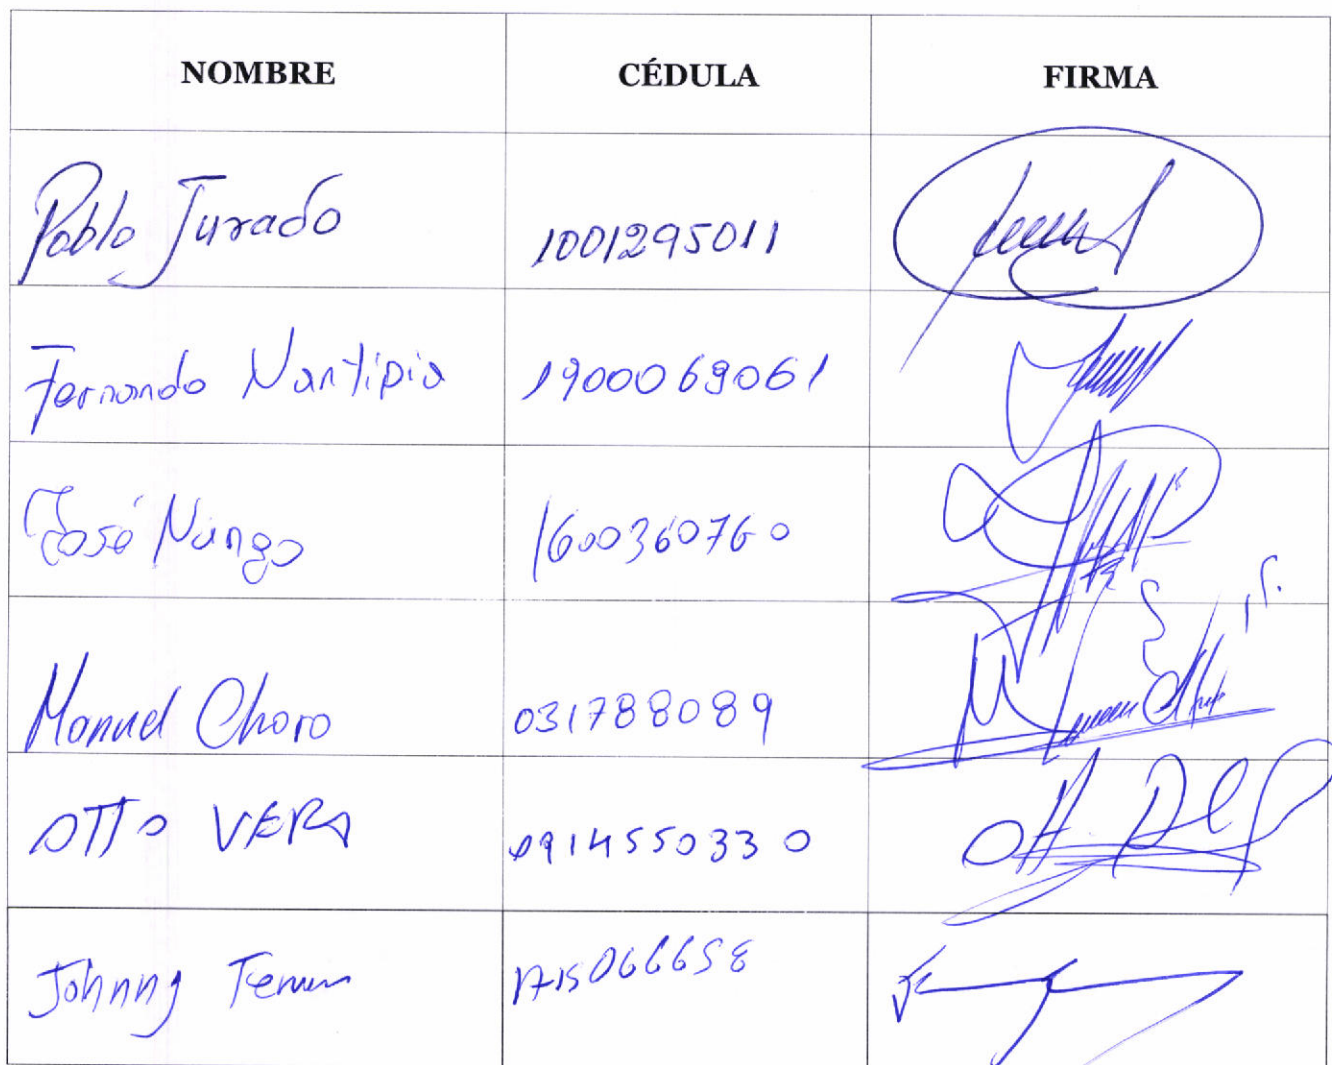 NOMBRE CÉDULA FIRMA
Pablo Jurado 1001295011
Fernando Nantipia 1900069061
José Nango 1600360760
Manuel Choro 031788089
OTTO VERA 0914550330
Johnny